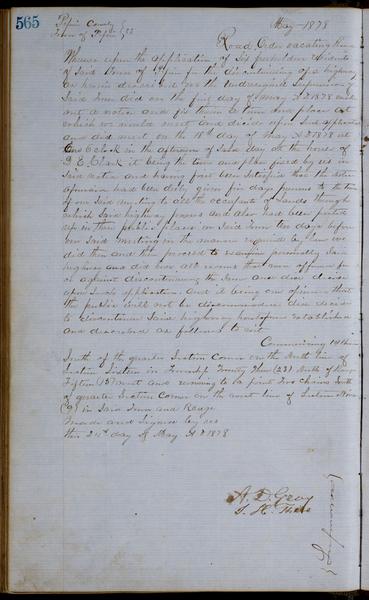 565
Pepin County } May 1878
Town of Pepin } ss
Road Order vacating Road
Whereas upon the application of Six freeholders residents
of Said Town of Pepin for the discontinuing of a highway
as herein described We the undersigned Supervisors of
Said Town did on the first day of May A D 1878 make
out a notice and fix therein a time and place at
which we would meet and decide upon Said application
and did meet on the 18th day of May A D 1878 at
One O clock in the afternoon of Said day at the house of
E. Clark it being the time and place fixed by us in
Said notice and having first been Satisfied that the notice
aforesaid had been duly given five days previous to the time
of our Said meeting to all the occupants of Lands through
which Said highway passes and also had been posted
up in three public places in Said Town ten days before
our Said meeting in the manner required by law we
did then and there proceed to examine personally Said
highway and did hear all reasons that were offered for
or against discontinuing the Same and did decide
upon Such application and it being our opinion that
the public will not be discommoded we decide
to discontinue Said highway heretofore established
and described as follows to wit
Commencing
South of the quarter Section Corner on the North line of
Section Sixteen in Township Twenty Three (23) North of Range
Fifteen (15) west and running to a point Two Chains South
of quarter Section Corner on the west line of Section Nine
(9) in Said Town and Range
Made and Signed by us
this day of May A D 1878
A. D. Gray